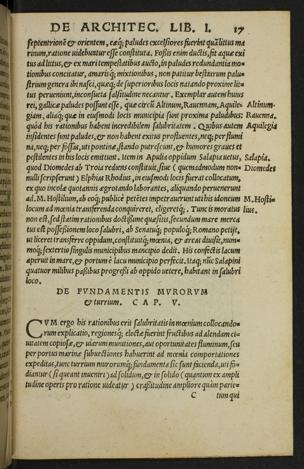 DE ARCHITEC. LIB. I. 17
septentrionē & orientem, eaq́; paludes excelsiores fuerint quā littus ma
rinum, ratione uidebuntur esse constituta. Fossis enim ductis, fit aquæ exi
tus ad littus, & ex mari tempestatibus aucto, in paludes redundantia mo-
tionibus concitatur, amarisq́; mixtionibus, non patitur bestiarum palu-
strium genera ibi nasci, quæq́; de superioribus locis natando proxime lit-
tus perueniunt, inconsueta salsitudine necantur. Exemplar autem huius
rei, gallicæ paludes possunt esse, quæ circū Altinum, Rauennam, Aquile- Altinum.
giam, aliaq́; quæ in eiusmodi locis municipia sunt proxima paludibus: Rauenna.
quòd his rationibus habent incredibilem salubritatem. Quibus autem Aquilegia
insidentes sunt paludes, & non habent exitus profluentes, neq; per flumi
na, neq; per fossas, uti pontinæ, stando putrescunt, & humores graues et
pestilentes in his locis emittunt. Item in Apulia oppidum Salapia uetus, Salapia.
quod Diomedes ab Troia rediens constituit, siue (quemadmodum non- Diomedes
nulli scripserunt) Elphias Rhodius, in eiusmodi locis fuerat collocatum,
ex quo incolæ quotannis ægrotando laborantes, aliquando peruenerunt
ad M. Hostilium, ab eoq́; publicè petētes impetrauerunt uti his idoneum M. Hosti-
locum ad mœnia transferenda conquireret, eligeretq́;. Tunc is moratus lius.
non est, sed statim rationibus doctissimè quæsitis, secundum mare merca
tus est possessionem loco salubri, ab Senatuq́; populoq́; Romano petijt,
ut liceret transferre oppidum, constituitq́; mœnia, & areas diuisit, num-
moq́; sextertio singulis municipibus mancipio dedit. His confectis lacum
aperuit in mare, & portum è lacu municipio perfecit. Itaq; nūc Salapini
quatuor millibus passibus progressi ab oppido uetere, habitant in salubri
loco.
DE FVNDAMENTIS MVRORVM
& turrium. CAP. V.
CVM ergo his rationibus erit salubritatis in mœnium collocando-
rum explicatio, regionesq́; electæ fuerint fructibus ad alendam ci-
uitatem copiosæ, & uiarum munitiones, aut oportunitates fluminum, seu
per portus marinæ subuectiones habuerint ad mœnia comportationes
expeditas, tunc turrium murorumq́; fundamenta sic sunt facienda, uti fo-
diantur (si queant inueniri) ad solidum, & in solido (quantum ex ampli
tudine operis pro ratione uideatur) crassitudine ampliore quàm parie-
C tum qui